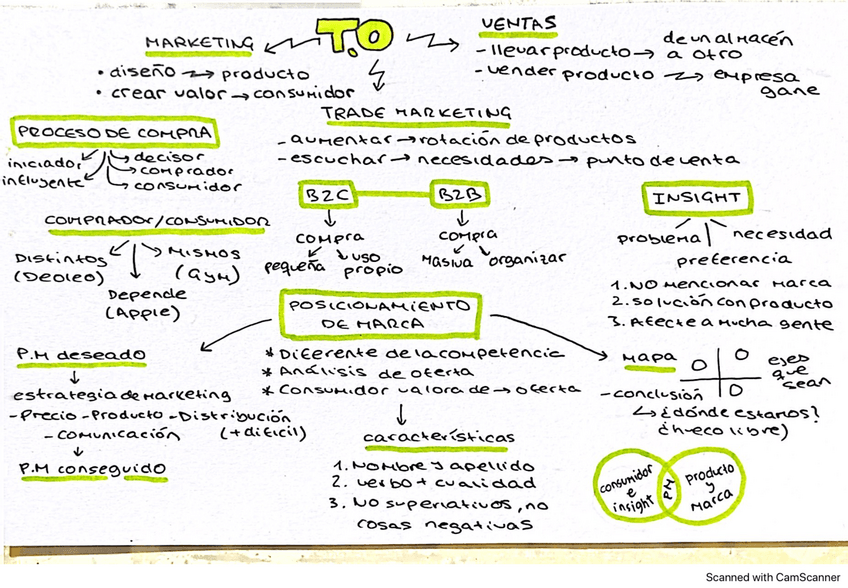 T.O
MARKETING
• diseño → producto
• crear valor → consumidor
VENTAS
- llevar producto → de un almacén
a otro
- vender producto → empresa
gane
TRADE MARKETING
- aumentar → rotación de productos
- escuchar → necesidades → punto de venta
PROCESO DE COMPRA
iniciador
influyente
decisor
comprador
consumidor
COMPRADOR/CONSUMIDOR
Distintos
(Deoleo)
Depende
(Apple)
Mismos
(Gym)
B2C
compra
pequeña
uso
propio
B2B
compra
Masiva
organizar
INSIGHT
problema
necesidad
preferencia
1. No mencionar marca
2. solución con producto
3. Afecte a mucha gente
POSICIONAMIENTO
DE MARCA
* Diferente de la competencia
* Análisis de oferta
* Consumidor valora de → oferta
características
1. Nombre y apellido
2. verbo + cualidad
3. No superlativos, no
cosas negativas
P.M deseado
estrategia de marketing
- Precio - Producto - Distribución
(+ dificil)
- comunicación
P.M conseguido
MAPA
ejes
que
sean
- conclusión
↳ ¿dónde estamos?
¿hueco libre)
consumidor
e
insight
PM
producto
y
marca
Scanned with CamScanner